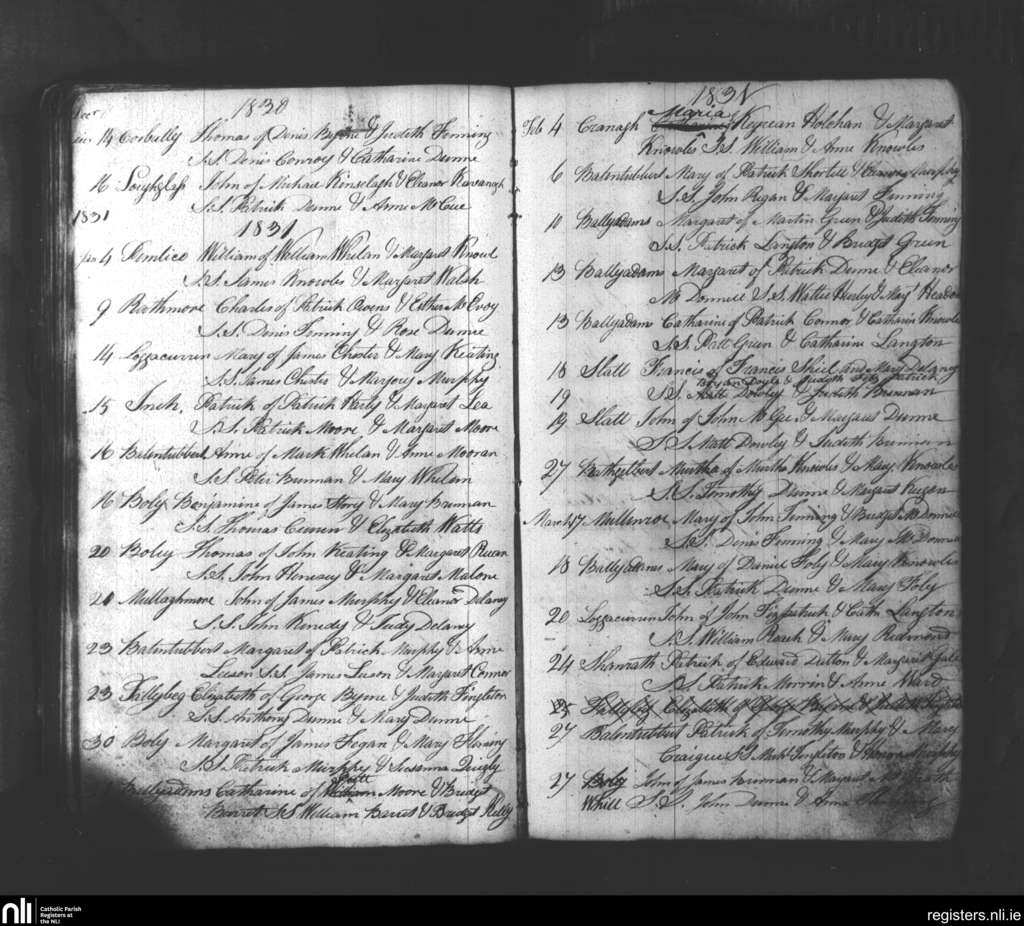 1830
14 Corbally Thomas of Denis Byrne & Judith Fenning
S.S. Denis Conroy & Catharine Dunne
16 John of Michael Kinselagh & Eleanor Kavanagh
S.S. Patrick Dunne & Anne McCue
1831
1831
Jan 4 Pimlico William of William Whelan & Margaret Knowl
S.S. James Knowles & Margaret Walsh
9 Rathmore Charles of Patrick Owens & Esther McEvoy
S.S. Denis Fenning & Rose Dunne
14 Loggacurrin Mary of James Chester & Mary Keating
S.S. James Chester & Marjory Murphy
15 Inch, Patrick of Patrick & Margaret Lea
S.S. Patrick Moore & Margaret Moore
16 Balentubbert Anne of Mark Whelan & Anne Mooran
S.S. Peter Brennan & Mary Whelan
16 Boly Benjamine of James Story & Mary Brennan
S.S. Thomas Curren & Elizabeth Watts
20 Boley Thomas of John Keating & Margaret
S.S. John Henesey & Margaret Malone
21 Mullaghmore John of James Murphy & Eleanor Delany
S.S. John Kenedy & Judy Delany
23 Balentubbert Margaret of Patrick Murphy & Anne
Leeson S.S. James Leeson & Margaret Connor
23 Fallybeg Elizabeth of George Byrne & Judith Singleton
S.S. Anthony Dunne & Mary Dunne
30 Boly Margaret of James Fogan & Mary Fleming
S.S. Patrick Murphy & Susanna Quigly
Ballyadams Catharine of Moore & Bridget
S.S. William & Bridget Kelly
1831
Maria
Feb 4 Cranagh Kyrean Holohan & Margaret
Knowles S.S. William & Anne Knowles
6 Balentubbert Mary of Patrick Shortell & Murphy
S.S. John Regan & Margaret Fenning
10 Ballyadams Margaret of Martin Green & Judith Fenning
S.S. Patrick Langton & Bridget Green
13 Ballyadams Margaret of Patrick Dunne & Eleanor
McDonnell S.S. Wattie & Margt Headon
13 Ballyadams Catharine of Patrick Connor & Catharin Knowle
S.S. Patt Green & Catharine Langton
18 Slatt Francis of Francis Shiel and Mary Delany
Bryan Doyle & Judith Fitz Patrick
19 S.S. Matt Dowley & Judith Brennan
19 Slatt John of John McGee & Margaret Dunne
S.S. Matt Dowley & Judith Brennan
27 Rathgilbert Murtha of Murtha Knowles & Mary Knowles
S.S. Timothy Dunne & Margaret Regan
March 17 Millenroe Mary of John Fenning & Bridget McDonnel
S.S. Denis Fenning & Mary McDonnel
18 Ballyadams Mary of Daniel Foly & Mary Knowles
S.S. Patrick Dunne & Mary Foly
20 Loggacurrin John of John Fizpatrick & Cath Langton
S.S. William Roach & Mary Redmond
24 Shanrath Patrick of Edward Dutton & Margaret Gale
S.S. Patrick Morrin & Anne Ward
Fallybeg Elizabeth of George Byrne & Judith Singleton
27 Balentubbert Patrick of Timothy Murphy & Mary
Craigue S.S. Mark Singleton & Murphy
27 Boly John of James Brennan & Margaret
Whill S.S. John Dunne & Anne
nli Catholic Parish
Registers at
the NLI
registers.nli.ie